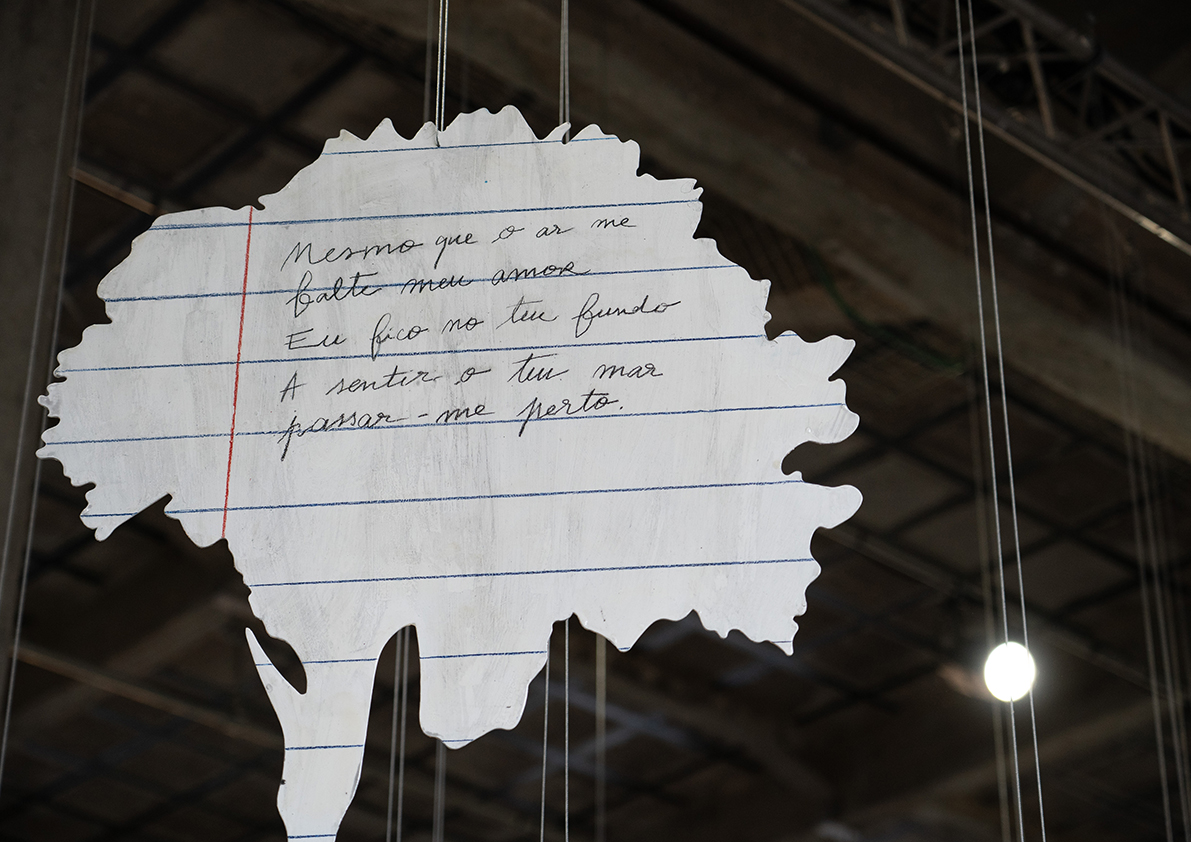 Mesmo que o ar me
falte meu amor
Eu fico no teu fundo
A sentir o teu mar
passar-me perto.